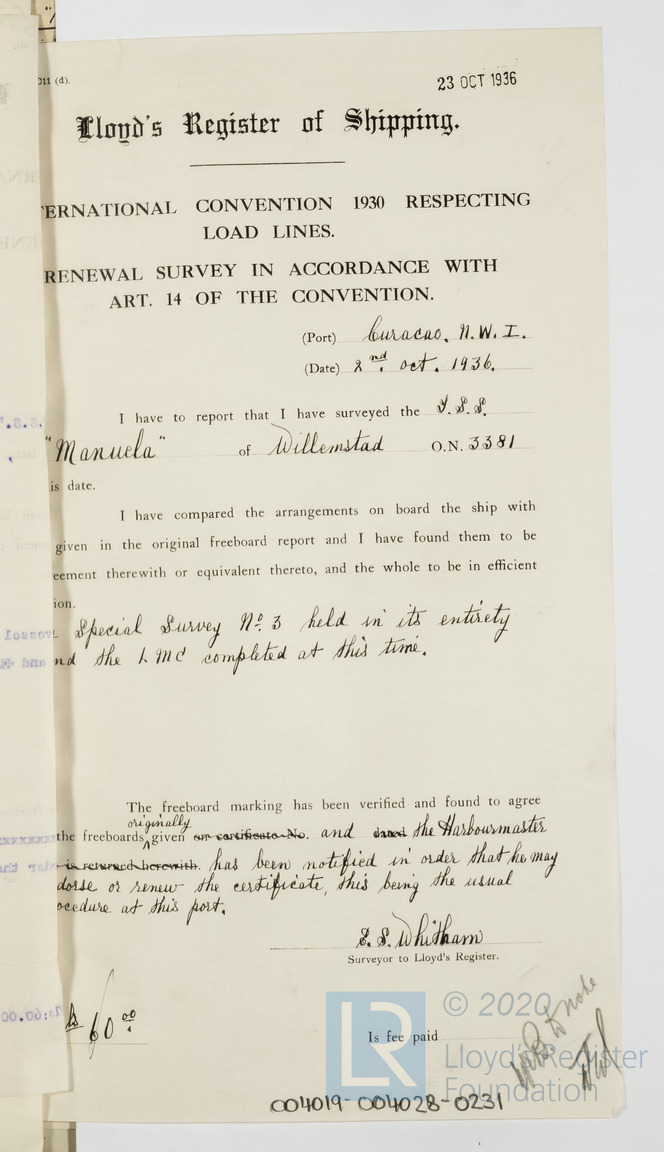 011 (d).
23 OCT 1936
Lloyd's Register of Shipping.
TERNATIONAL CONVENTION 1930 RESPECTING
LOAD LINES.
RENEWAL SURVEY IN ACCORDANCE WITH
ART. 14 OF THE CONVENTION.
(Port) Curacao. N.W.I.
(Date) 2nd. Oct. 1936.
I have to report that I have surveyed the T.S.S.
"Manuela" of Willemstad O.N. 3381
is date.
I have compared the arrangements on board the ship with
given in the original freeboard report and I have found them to be
eement therewith or equivalent thereto, and the whole to be in efficient
ion.
Special Survey No. 3 held in its entirety
nd the LMC completed at this time.
The freeboard marking has been verified and found to agree
originally
the freeboards given on certificate No. and dated the Harbourmaster
is returned herewith. has been notified in order that he may
dorse or renew the certificate, this being the usual
ocedure at this port.
E. S. Whitham
Surveyor to Lloyd's Register.
60.00
Is fee paid
LR
© 2020
Lloyd's Register
Foundation
004019-004028-0231